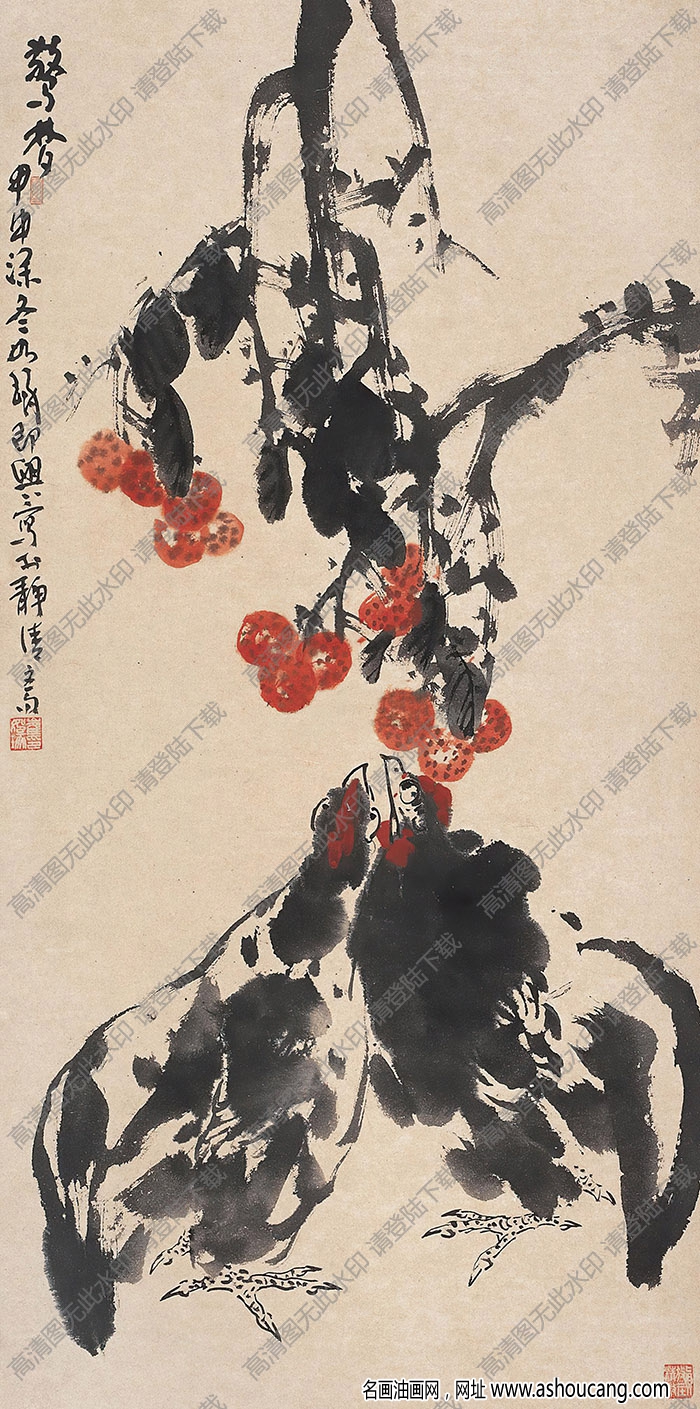 驚梦
甲申深冬如琳即興写于静清斋
高清图无此水印 请登陆下载
名画油画网，网址 www.ashoucang.com